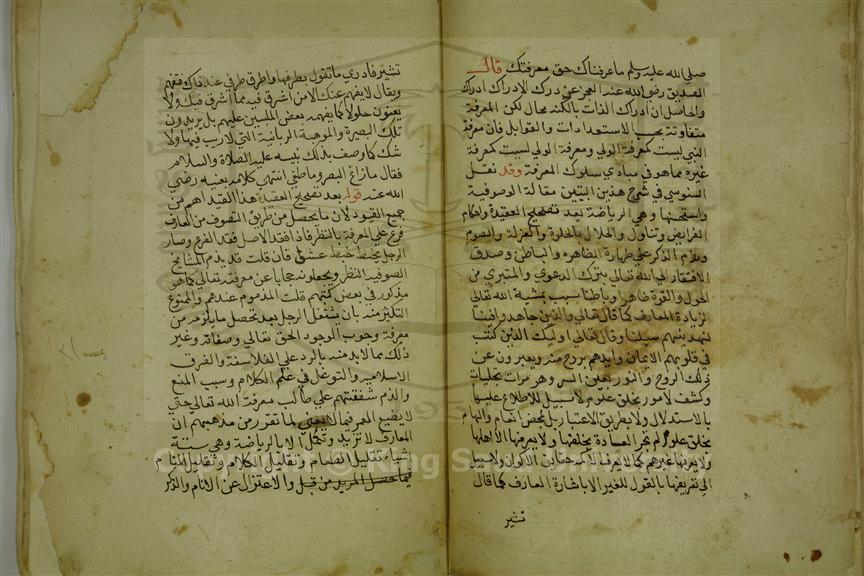 صلي الله عليه وسلم ما عرفناك حق معرفتك قال
الصديق رضي الله عنه العجز عن درك الادراك ادراك
والحاصل ان ادراك الذات بالكنه محال لكن المعرفة
متفاوتة بحسب الاستعدادات والقوابل فان معرفة
النبي ليست كمعرفة الولي ومعرفة الولي ليست كمعرفة
غيره مما هو في مبادي سلوك المعرفة وقد نقل
السنوسي في شرح هذين البيتين مقالة الوصوفية
واستحسنها وهي الرياضة بعد تصحيح العقيدة واحكام
الفرايض وتناول والحلال بالخلوة والعزلة والصوم
ودوام الذكر علي طهارة الظاهر والباطن وصدق
الافتقار الي الله تعالي بترك الدعوي والتبري من
الحول والقوة ظاهرا وباطنا سبب بمشية الله تعالي
لزيادة المعارف كما قال تعالي والذين جاهدوا فينا
لنهدينهم سبلنا وقال تعالي اوليك الذين كتب
في قلوبهم الايمان وايدهم بروح منه ويعبرون عن
ذلك الروح والنور بعين السر وهو مرات تجليات
وكشف لامور بخلق علوم لا سبيل للاطلاع عليها
بالاستدلال ولا بطريق الاعتبار بل بمحض انعام والهام
بخلق علوم لم تجر العادة بخلقها ولا يعرفها الا اهلها
ولا يعرفها غيرهم كما لا يعرف الاكمه حقايق الالوان ولا سبيل
الي تعريفها بالقول للغير الا باشارة المعارف كما قال
تشير
تشير فادري ما تقول بطرفها واطرق طرفي عند ذاك فتفهم
ويقال لا يفهم عنك الا من اشرق فيه ما اشرق فيك ولا
يعنون حلولا كما يفهمه بعض الملبسين عليهم بل يريدون
تلك البصيرة والموهبة الربانية التي لا ريب فيها ولا
شك كما وصف بذلك نبيه عليه الصلاة والسلام
فقال ما زاغ البصر وما طغي انتهي كلامه بعينه رضي
الله عنه قوله بعد تصحيح العقيدة هذا القيد اهم من
جميع القيود لان ما يحصل من طريق التصوف من المعارف
فرع علي المعرفة بالنظر فاذا فقد الاصل فقد الفرع وصار
الرجل يخبط خبط عشوا فان قلت قد يذم المشايخ
الصوفية النظر ويجعلونه حجابا عن معرفته تعالي كما هو
مذكور في بعض كتبهم قلت المذموم عندهم والممنوع
التكثر منه بان يشتغل الرجل بعد تحصيل ما يلزمه من
معرفة وجوب الوجود الحق تعالي وصفاته وغير
ذلك مما لا بد منه بالرد علي الفلاسفة والفرق
الاسلامية والتوغل في علم الكلام وسبب المنع
والذم شفقتهم علي طالب معرفة الله تعالي حتي
لا يضيع العمر فيما لا يعني لما تقرر من مذهبهم ان
المعارف لا تزيد وتكمل الا بالرياضة وهي ستة
اشياء تقليل الطعام وتقليل الكلام وتقليل المنام
فيما حصل المريد من قبل والاعتزال عن الانام والذكر
Copyright © King Saud University